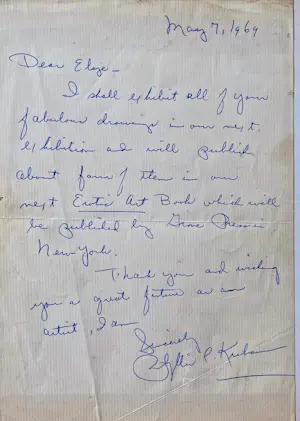 May 7, 1969
Dear Elaze –
I shall exhibit all of your
fabulous drawings in our next
exhibition and will publish
about four of them in our
next Erotic Art Book which will
be published by Grove Press in
New York.
Thank you and wishing
you a great future as an
artist, I am
Sincerely
Phyllis C. Kronhausen